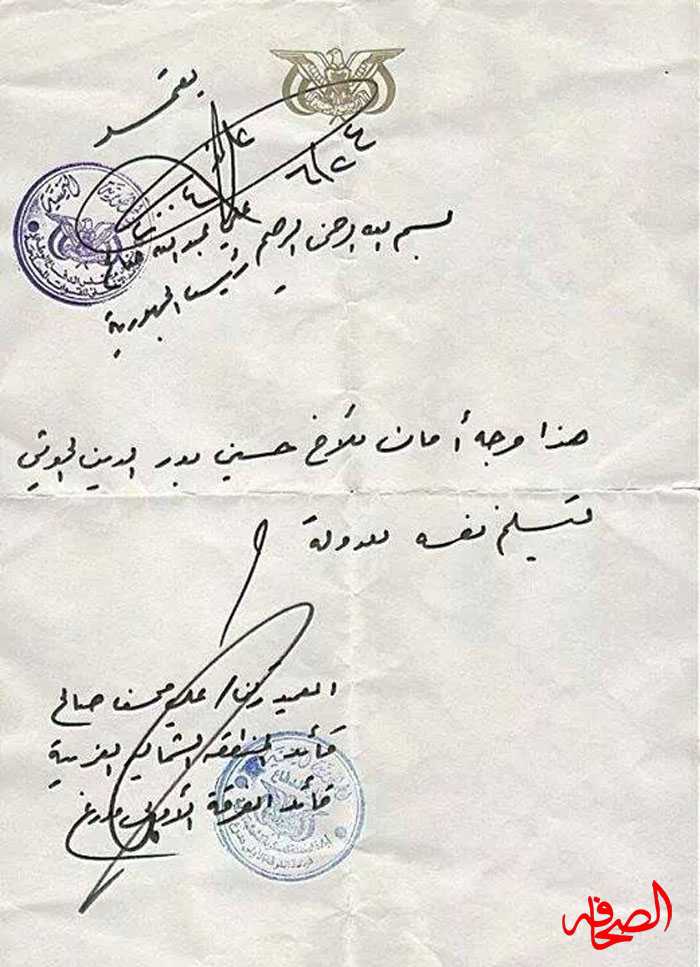 يعتمد
علي عبدالله صالح
رئيس الجمهورية
بسم الله الرحمن الرحيم
هذا وجه أمان للأخ حسين بدر الدين الحوثي
لتسليم نفسه للدولة
العميد ركن/ علي محسن صالح
قائد المنطقة الشمالية الغربية
قائد الفرقة الأولى مدرع
الصحافة